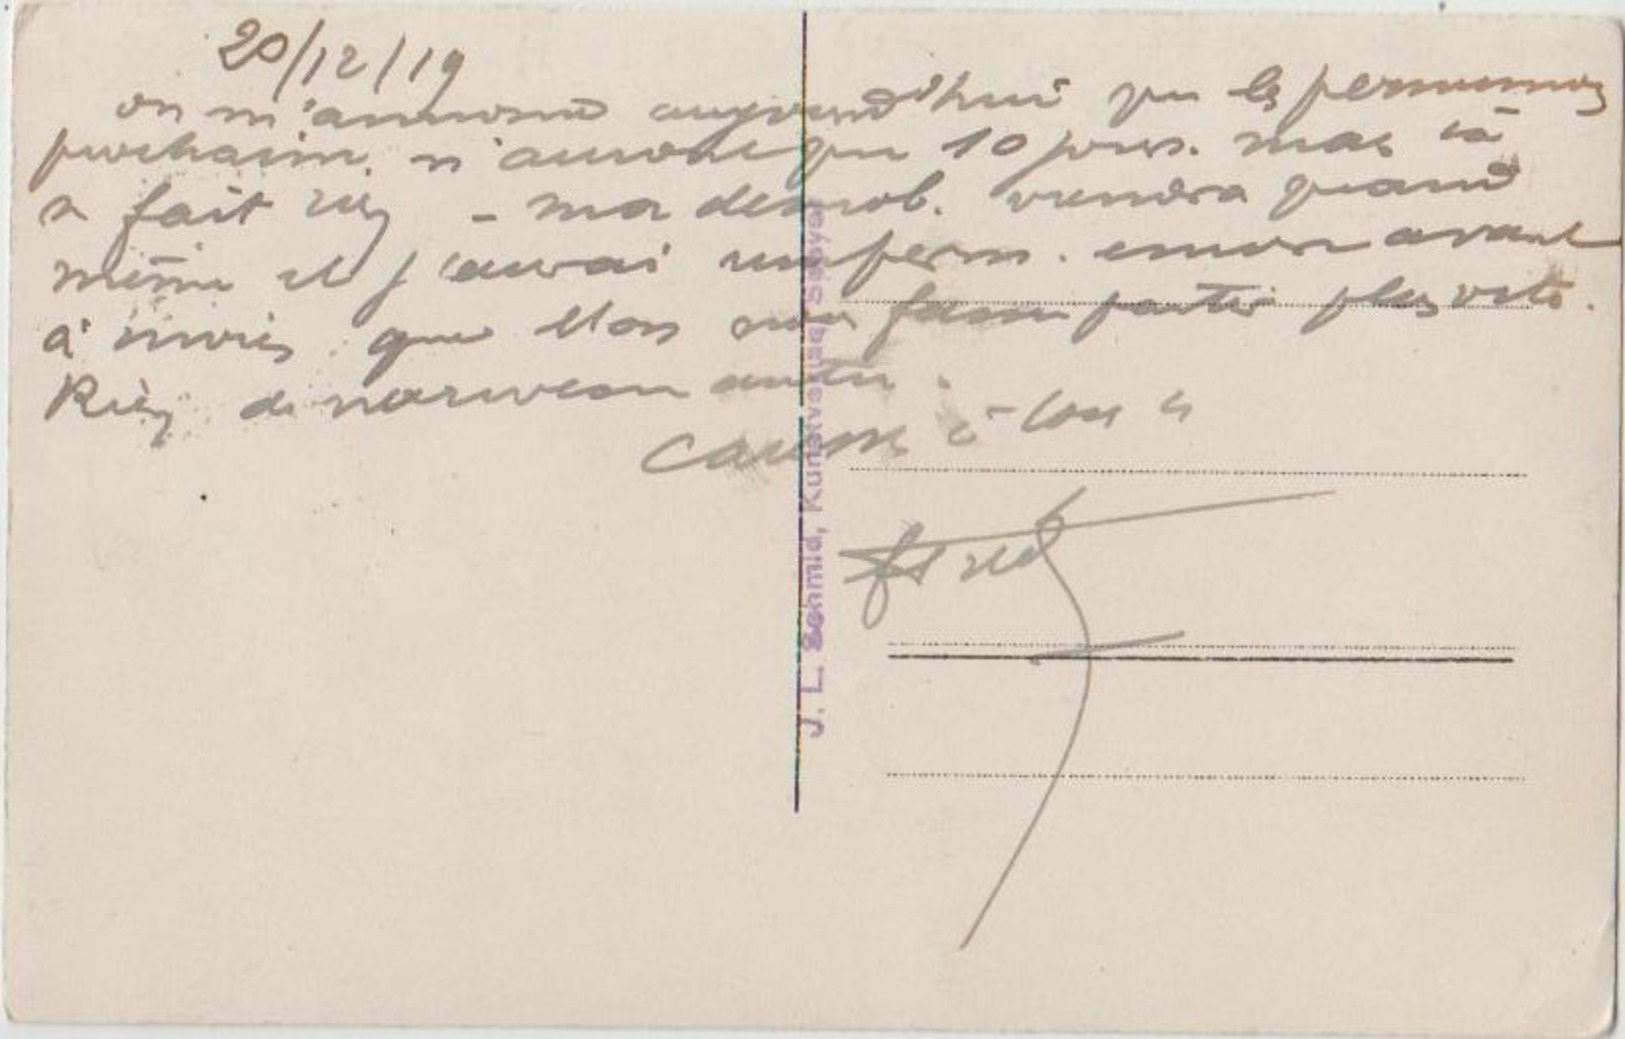 20/12/19
on m'annonce aujourd'hui que les permissions
prochaines n'auront que 10 jours. mais ça
ne fait rien - ma demob. viendra quand
même et j'aurai une perm. encore avant
à moins que l'on nous fasse partir plus vite.
Rien de nouveau autre.
à tous 4
Fred
J. L. Schmid, Kunstverlag, Speyer